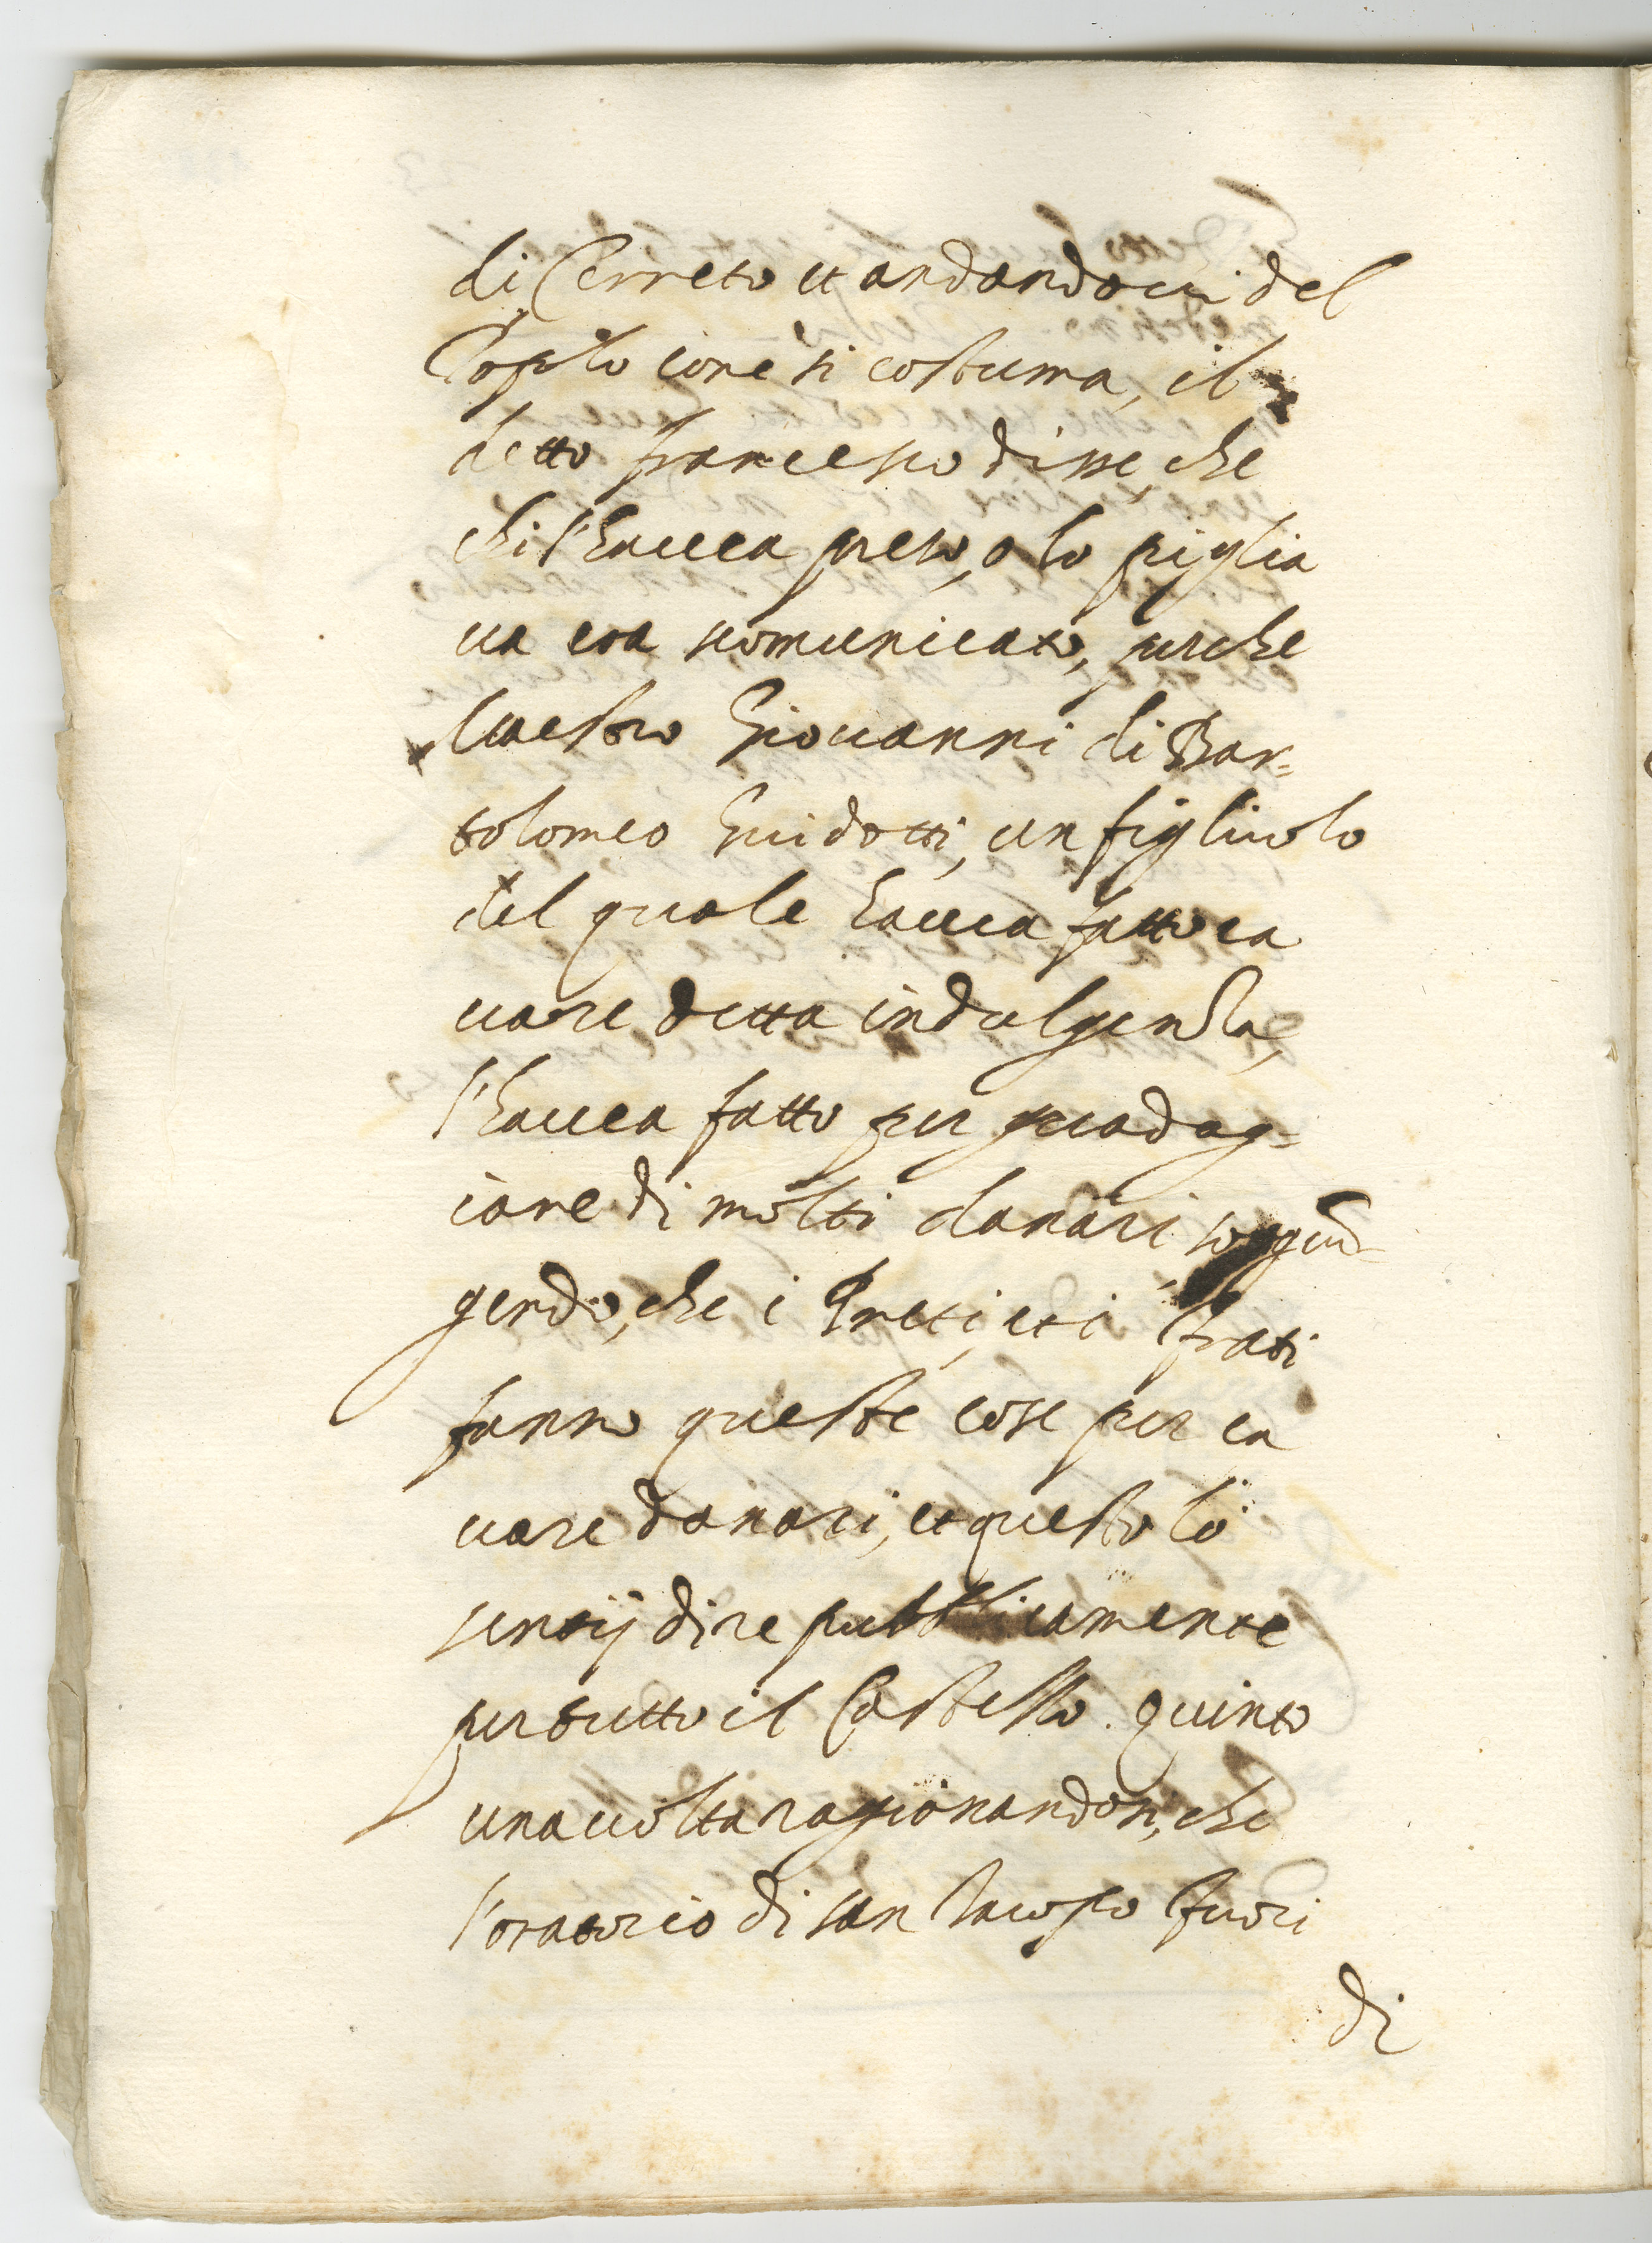 di Cerreto et andandoui del
Popolo come si costuma, il
detto francesco disse, che
chi l'haueua preso, o lo piglia
ua era scomunicato, perche
Maestro Giouanni di Bar=
tolomeo Guidotti, un figliuolo
del quale haueua fatto ca
uare detta indulgenza,
l'haueua fatto per guadag=
iare di molti danari soggiu=
gendo, che i Preti, et i frati
fanno queste cose per ca
uare danari, et questo lo
sentij dire pubblicamente
per tutto il Castello. quinto
una uolta ragionandosi, che
l'oratorio di san Iacopo fuori
di